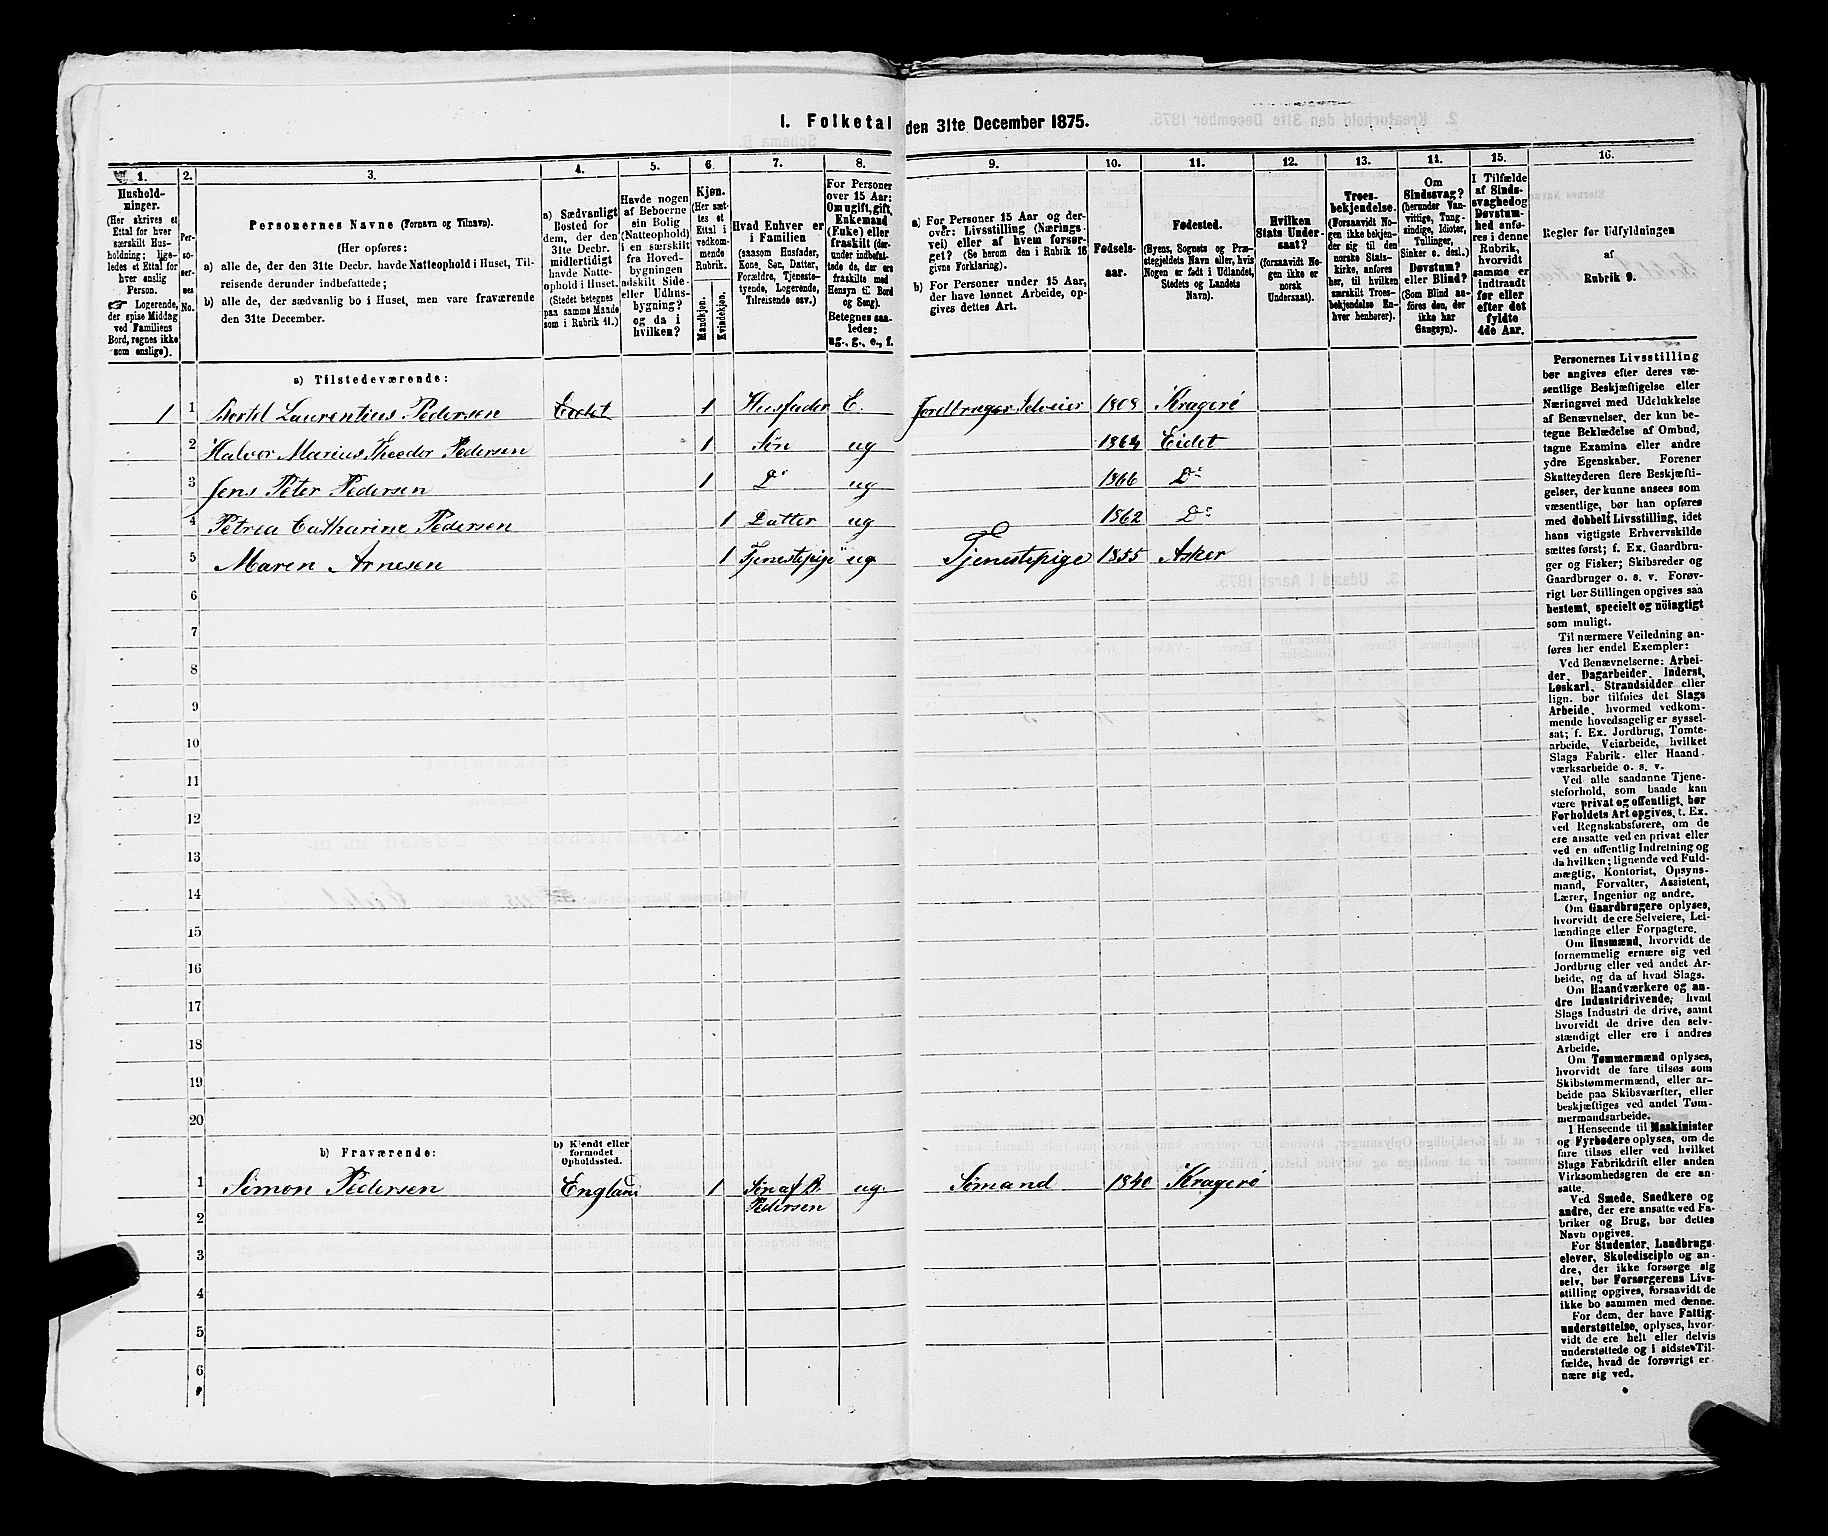 1. Folketal den 31te December 1875.
1. 2. 3. 4. 5. 6. 7. 8. 9. 10. 11. 12. 13. 14. 15. 16.
Hushold-
ninger.
(Her skrives et
Ettal for hver
særskilt Hus-
holdning; lige-
ledes et Ettal for
hver enslig
Person.
☞ Logerende,
der spise Middag
ved Familiens
Bord, regnes ikke
som enslige).
Per-
so-
ner-
nes
No.
Personernes Navne (Fornavn og Tilnavn).
(Her opføres:
a) alle de, der den 31te Decbr. havde Natteophold i Huset, Til-
reisende derunder indbefattede;
b) alle de, der sædvanlig bo i Huset, men vare fraværende
den 31te December.
a) Sædvanligt
Bosted for
dem, der den
31te Decbr.
midlertidigt
havde Natte-
ophold i Huset.
(Stedet betegnes
paa samme Maade
som i Rubrik 11.)
Havde nogen
af Beboerne
sin Bolig
(Natteophold)
i en særskilt
fra Hoved-
bygningen
adskilt Side-
eller Udhus-
bygning?
og da i
hvilken?
Kjøn.
(Her sæt-
tes et
Ettal i
vedkom-
mende
Rubrik.
Mandkjøn.
Kvindekjøn.
Hvad Enhver er
i Familien
(saasom Husfader,
Kone, Søn, Datter,
Forældre, Tjeneste-
tyende, Logerende,
Tilreisende osv.)
For Personer
over 15 Aar:
Om ugift, gift,
Enkemand
(Enke) eller
fraskilt (der-
under indbefat-
tede de, der ere
fraskilte med
Hensyn til Bord
og Seng).
Betegnes saa-
ledes:
ug., g., e., f.
a) For Personer 15 Aar og der-
over: Livsstilling (Nærings-
vei) eller af hvem forsør-
get? (Se herom den i Rubrik 16
givne Forklaring).
b) For Personer under 15 Aar,
der have lønnet Arbeide, op-
gives dettes Art.
Fødsels-
aar.
Fødested.
(Byens, Sognets og Præ-
stegjeldets Navn eller, hvis
Nogen er født i Udlandet,
Stedets og Landets
Navn).
Hvilken
Stats Under-
saat?
(forsaavidt No-
gen ikke er
norsk
Undersaat).
Troes-
bekjendelse.
(Forsaavidt No-
gen ikke bekjen-
der sig til den
norske Stats-
kirke, anføres
her, til hvilken
særskilt Troes-
bekjendelse En-
hver henhører).
Om
Sindssvag?
(herunder Van-
vittige, Tung-
sindige, Idioter,
Tullinger,
Sinker o. desl.)
Døvstum?
eller Blind?
(Som Blind an-
føres den, der
ikke har
Gangsyn).
I Tilfælde
af Sinds-
svaghed og
Døvstum-
hed anfø-
res i denne
Rubrik,
hvorvidt
samme er
indtraadt
før eller
efter det
fyldte
4de Aar.
Regler for Udfyldningen
af
Rubrik 9.
a) Tilstedeværende:
1 1 Bertel Laurentius Pedersen Eidet 1 Husfader E. Jordbruger Selveier 1808 Kragerø
2 Halvor Marius Theodor Pedersen 1 Søn ug 1864 Eidet
3 Jens Peter Pedersen 1 Do ug 1866 Do
4 Petrea Catharine Pedersen 1 Datter ug 1862 Do
5 Maren Arnesen 1 Tjenestepige ug Tjenestepige 1855 Asker
6
7
8
9
10
11
12
13
14
15
16
17
18
19
20
b) Fraværende:
b) Kjendt eller
formodet
Opholdssted.
1 Simon Pedersen England 1 Søn af B. ug. Sømand 1840 Kragerø
2 Pedersen
3
4
5
6
Personernes Livsstilling
bør angives efter deres væ-
sentlige Beskjæftigelse eller
Næringsvei med Udelukkelse
af Benævnelser, der kun be-
tegne Beklædelse af Ombud,
tagne Examina eller andre
ydre Egenskaber. Forener
Skatteyderen flere Beskjæfti-
gelser, der kunne ansees som
væsentlige, bør han opføres
med dobbelt Livsstilling, idet
hans vigtigste Erhvervskilde
sættes først; f. Ex. Gaardbru-
ger og Fisker; Skibsreder og
Gaardbruger o. s. v. Forøv-
rigt bør Stillingen opgives saa
bestemt, specielt og nöiagtigt
som muligt.
Til nærmere Veiledning an-
føres her endel Exempler:
Ved Benævnelserne: Arbei-
der, Dagarbeider, Inderst,
Løskarl, Strandsidder eller
lign. bør tilføies det Slags
Arbeide, hvormed vedkom-
mende hovedsagelig er syssel-
sat; f. Ex. Jordbrug, Tomte-
arbeide, Veiarbeide, hvilket
Slags Fabrik- eller Haand-
værksarbeide o. s. v.
Ved alle saadanne Tjene-
steforhold, som baade kan
være privat og offentligt, bør
Forholdets Art opgives, t. Ex.
ved Regnskabsførere, om de
ere ansatte ved en privat eller
ved en offentlig Indretning og
da hvilken; lignende ved Fuld-
mægtig, Kontorist, Opsyns-
mand, Forvalter, Assistent,
Lærer, Ingeniør og andre.
Om Gaardbrugere oplyses,
hvorvidt de ere Selveiere, Lei-
lændinge eller Forpagtere.
Om Husmænd, hvorvidt de
fornemmelig ernære sig ved
Jordbrug eller ved andet Ar-
beide, og da af hvad Slags.
Om Haandværkere og an-
dre Industridrivende, hvad
Slags Industri de drive, samt
hvorvidt de drive den selv-
stændigt eller ere i andres
Arbeide.
Om Tømmermænd oplyses,
hvorvidt de fare tilsøs som
Skibstømmermænd, eller ar-
beide paa Skibsværfter, eller
beskjæftiges ved andet Tøm-
mermandsarbeide.
I Henseende til Maskinister
og Fyrbødere oplyses, om de
fare tilsøs eller ved hvilket
Slags Fabrikdrift eller anden
Virksomhedsgren de ere an-
satte.
Ved Smede, Snedkere og
andre, der ere ansatte ved Fa-
briker og Brug, bør dettes
Navn opgives.
For Studenter, Landbrugs-
elever, Skoledisciple og an-
dre, der ikke forsørge sig
selv, bør Forsørgerens Livs-
stilling opgives, forsaavidt de
ikke bo sammen med denne.
For dem, der have Fattig-
understøttelse, oplyses, hvor-
vidt de ere helt eller delvis
understøttede og i sidste Til-
fælde, hvad de forøvrigt er-
nære sig ved.